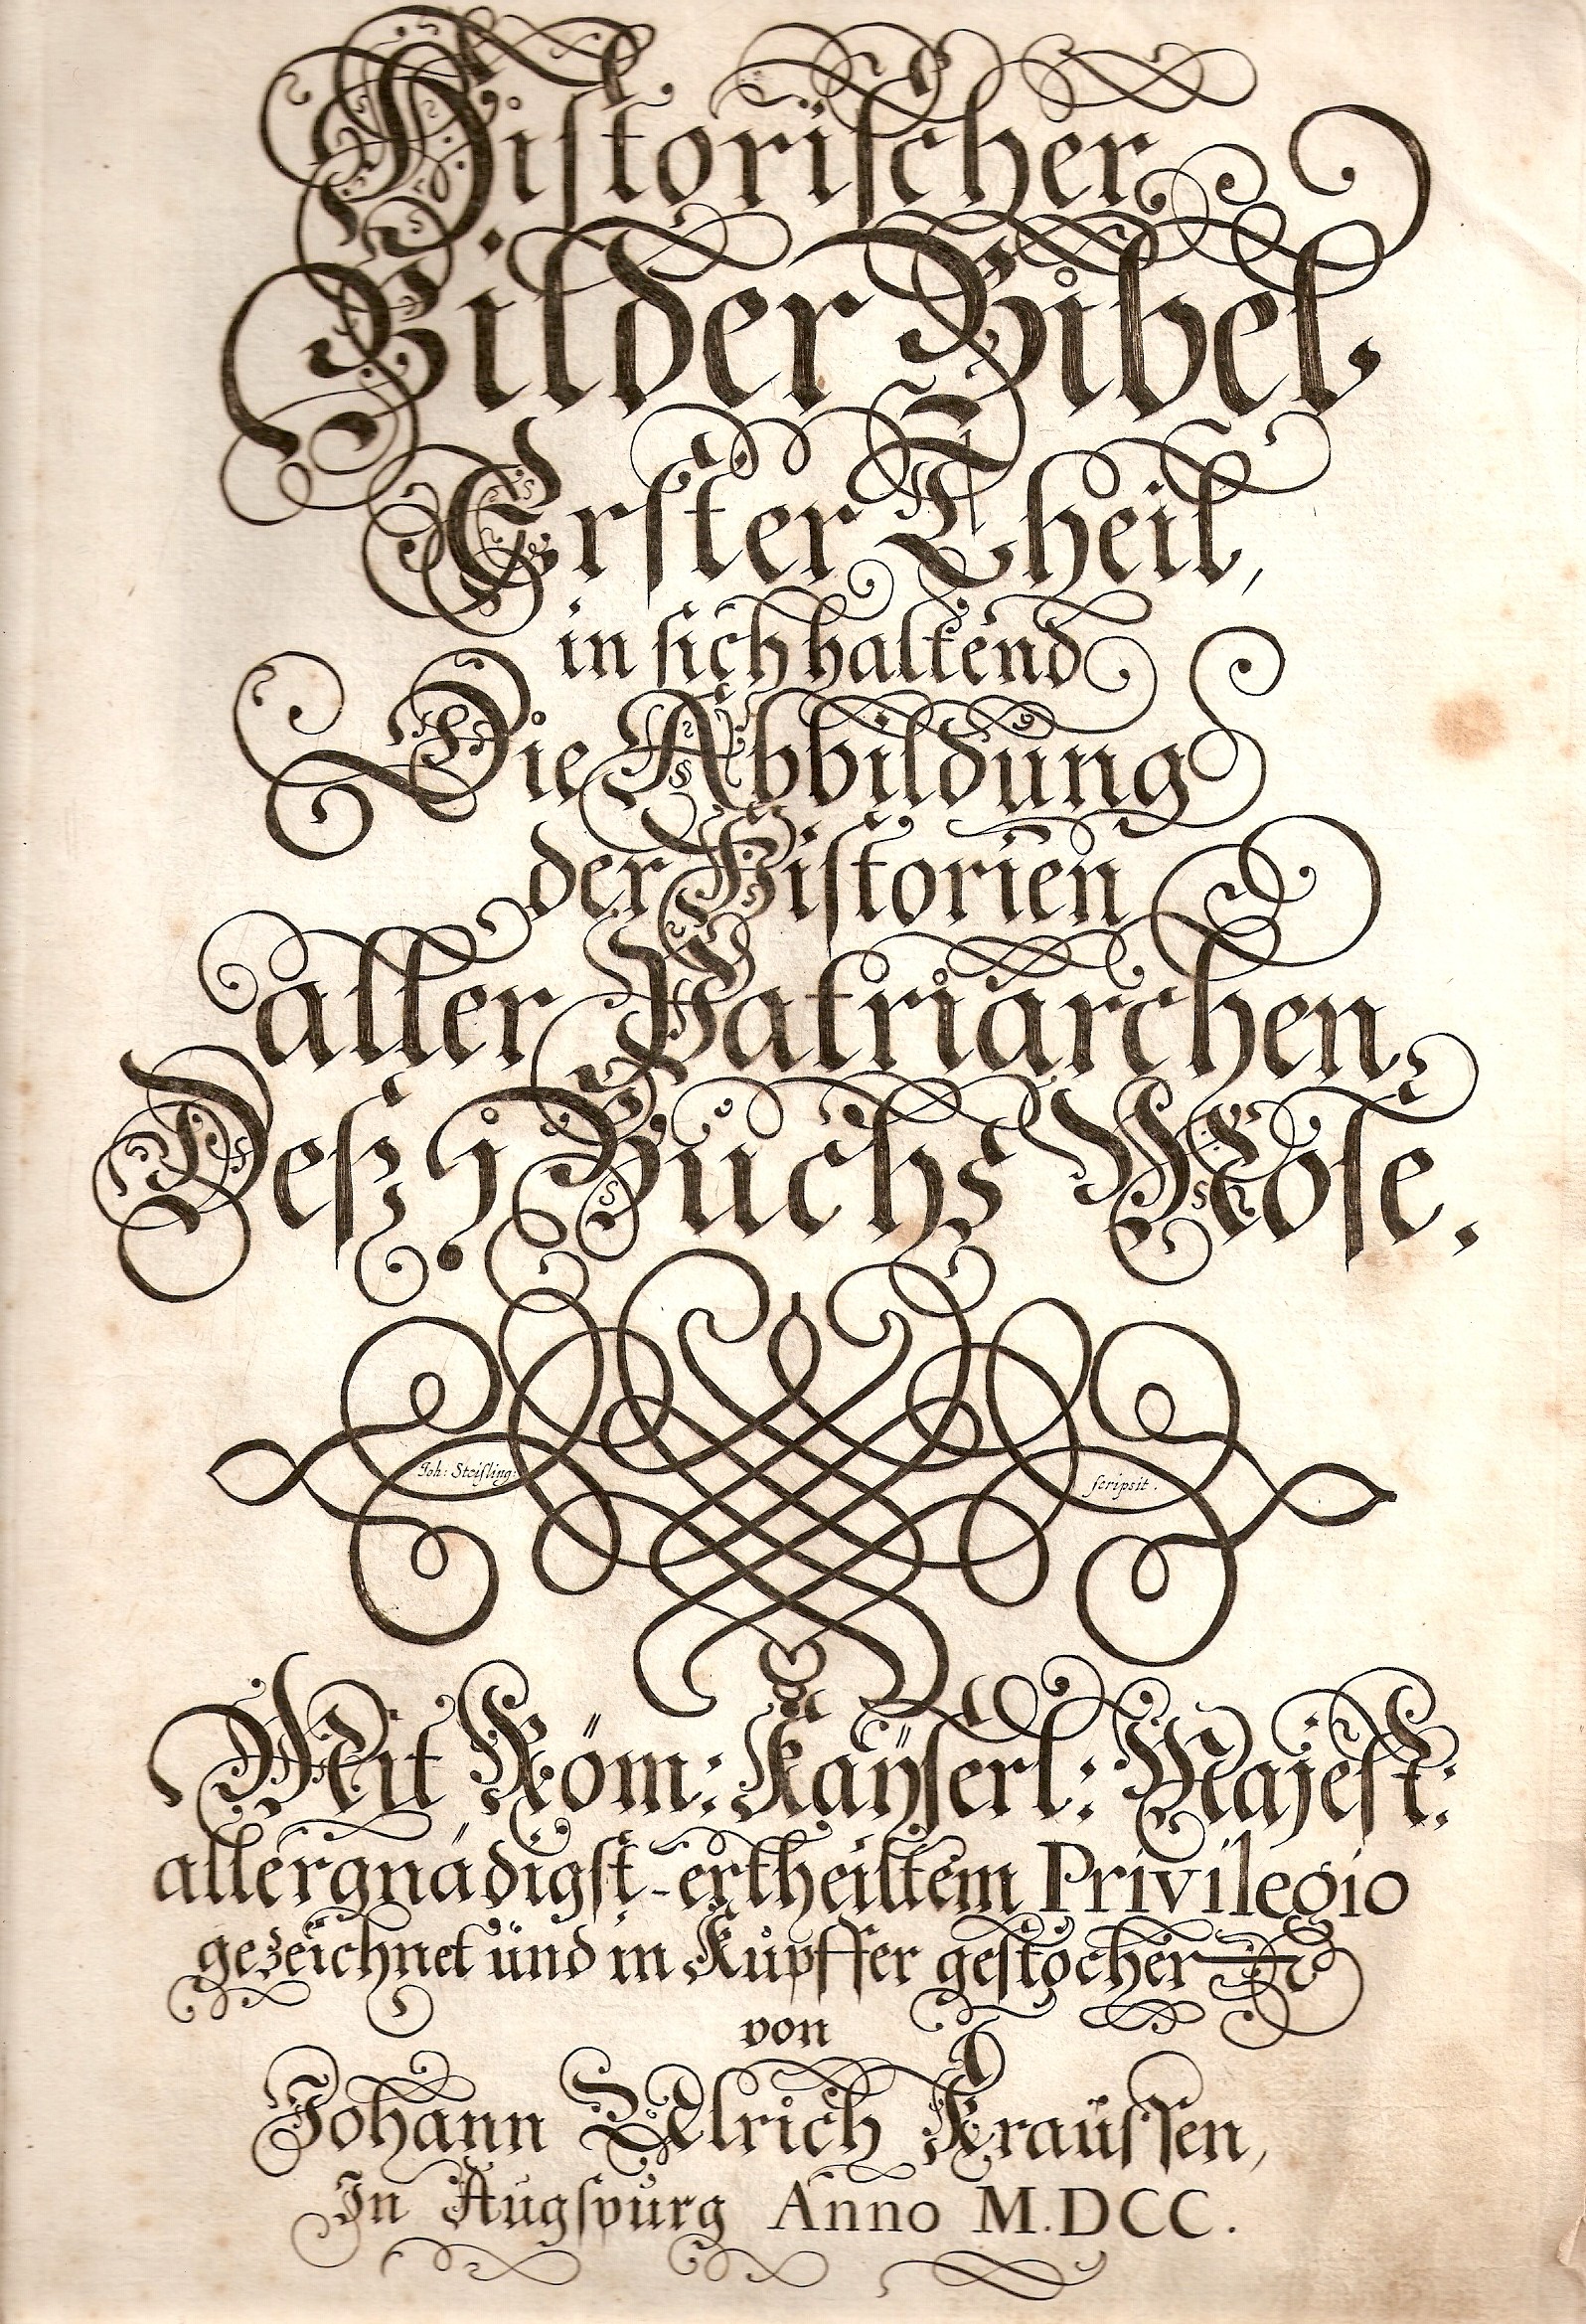 Historischer
Bilder Bibel.
Erster Theil,
in sich haltend
Die Abbildung
der Historien
aller Patriarchen.
Deß 1 Buchs Mose.
Joh: Steisling: scripsit.
Mit Röm: Kaÿserl: Majest:
allergnädigst-ertheiltem Privilegio
gezeichnet und in Kupffer gestochen
von
Johann Ulrich Kraussen,
In Augspurg Anno M.DCC.